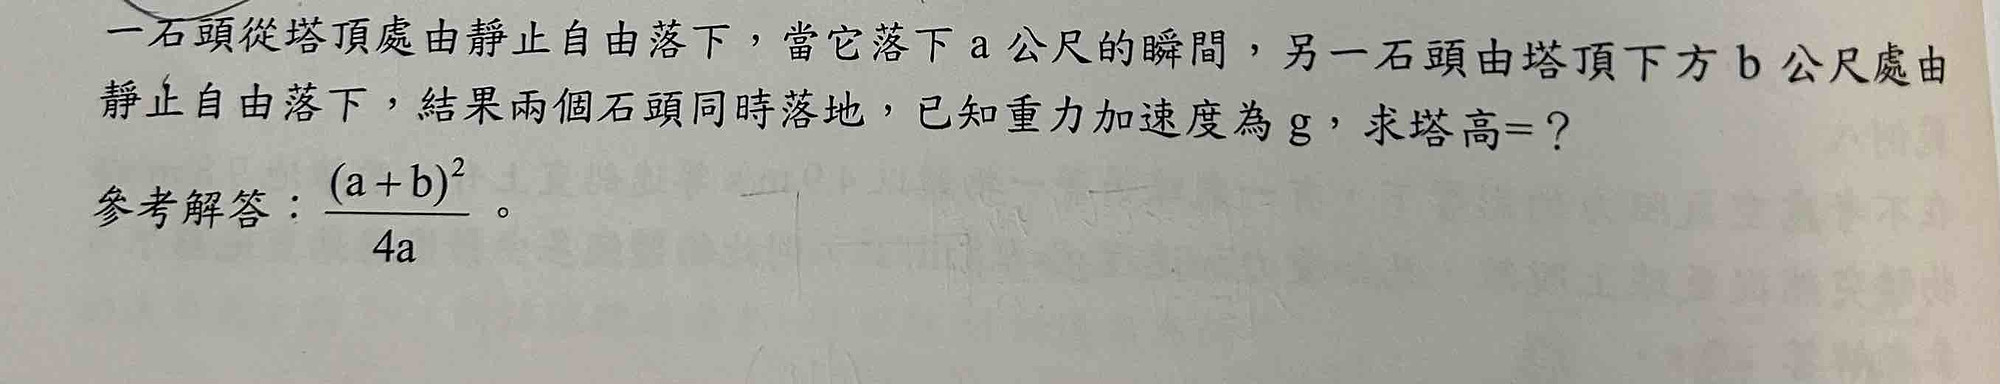 一石頭從塔頂處由靜止自由落下，當它落下 a 公尺的瞬間，另一石頭由塔頂下方 b 公尺處由
靜止自由落下，結果兩個石頭同時落地，已知重力加速度為 g，求塔高=？
參考解答：(a+b)²/4a。